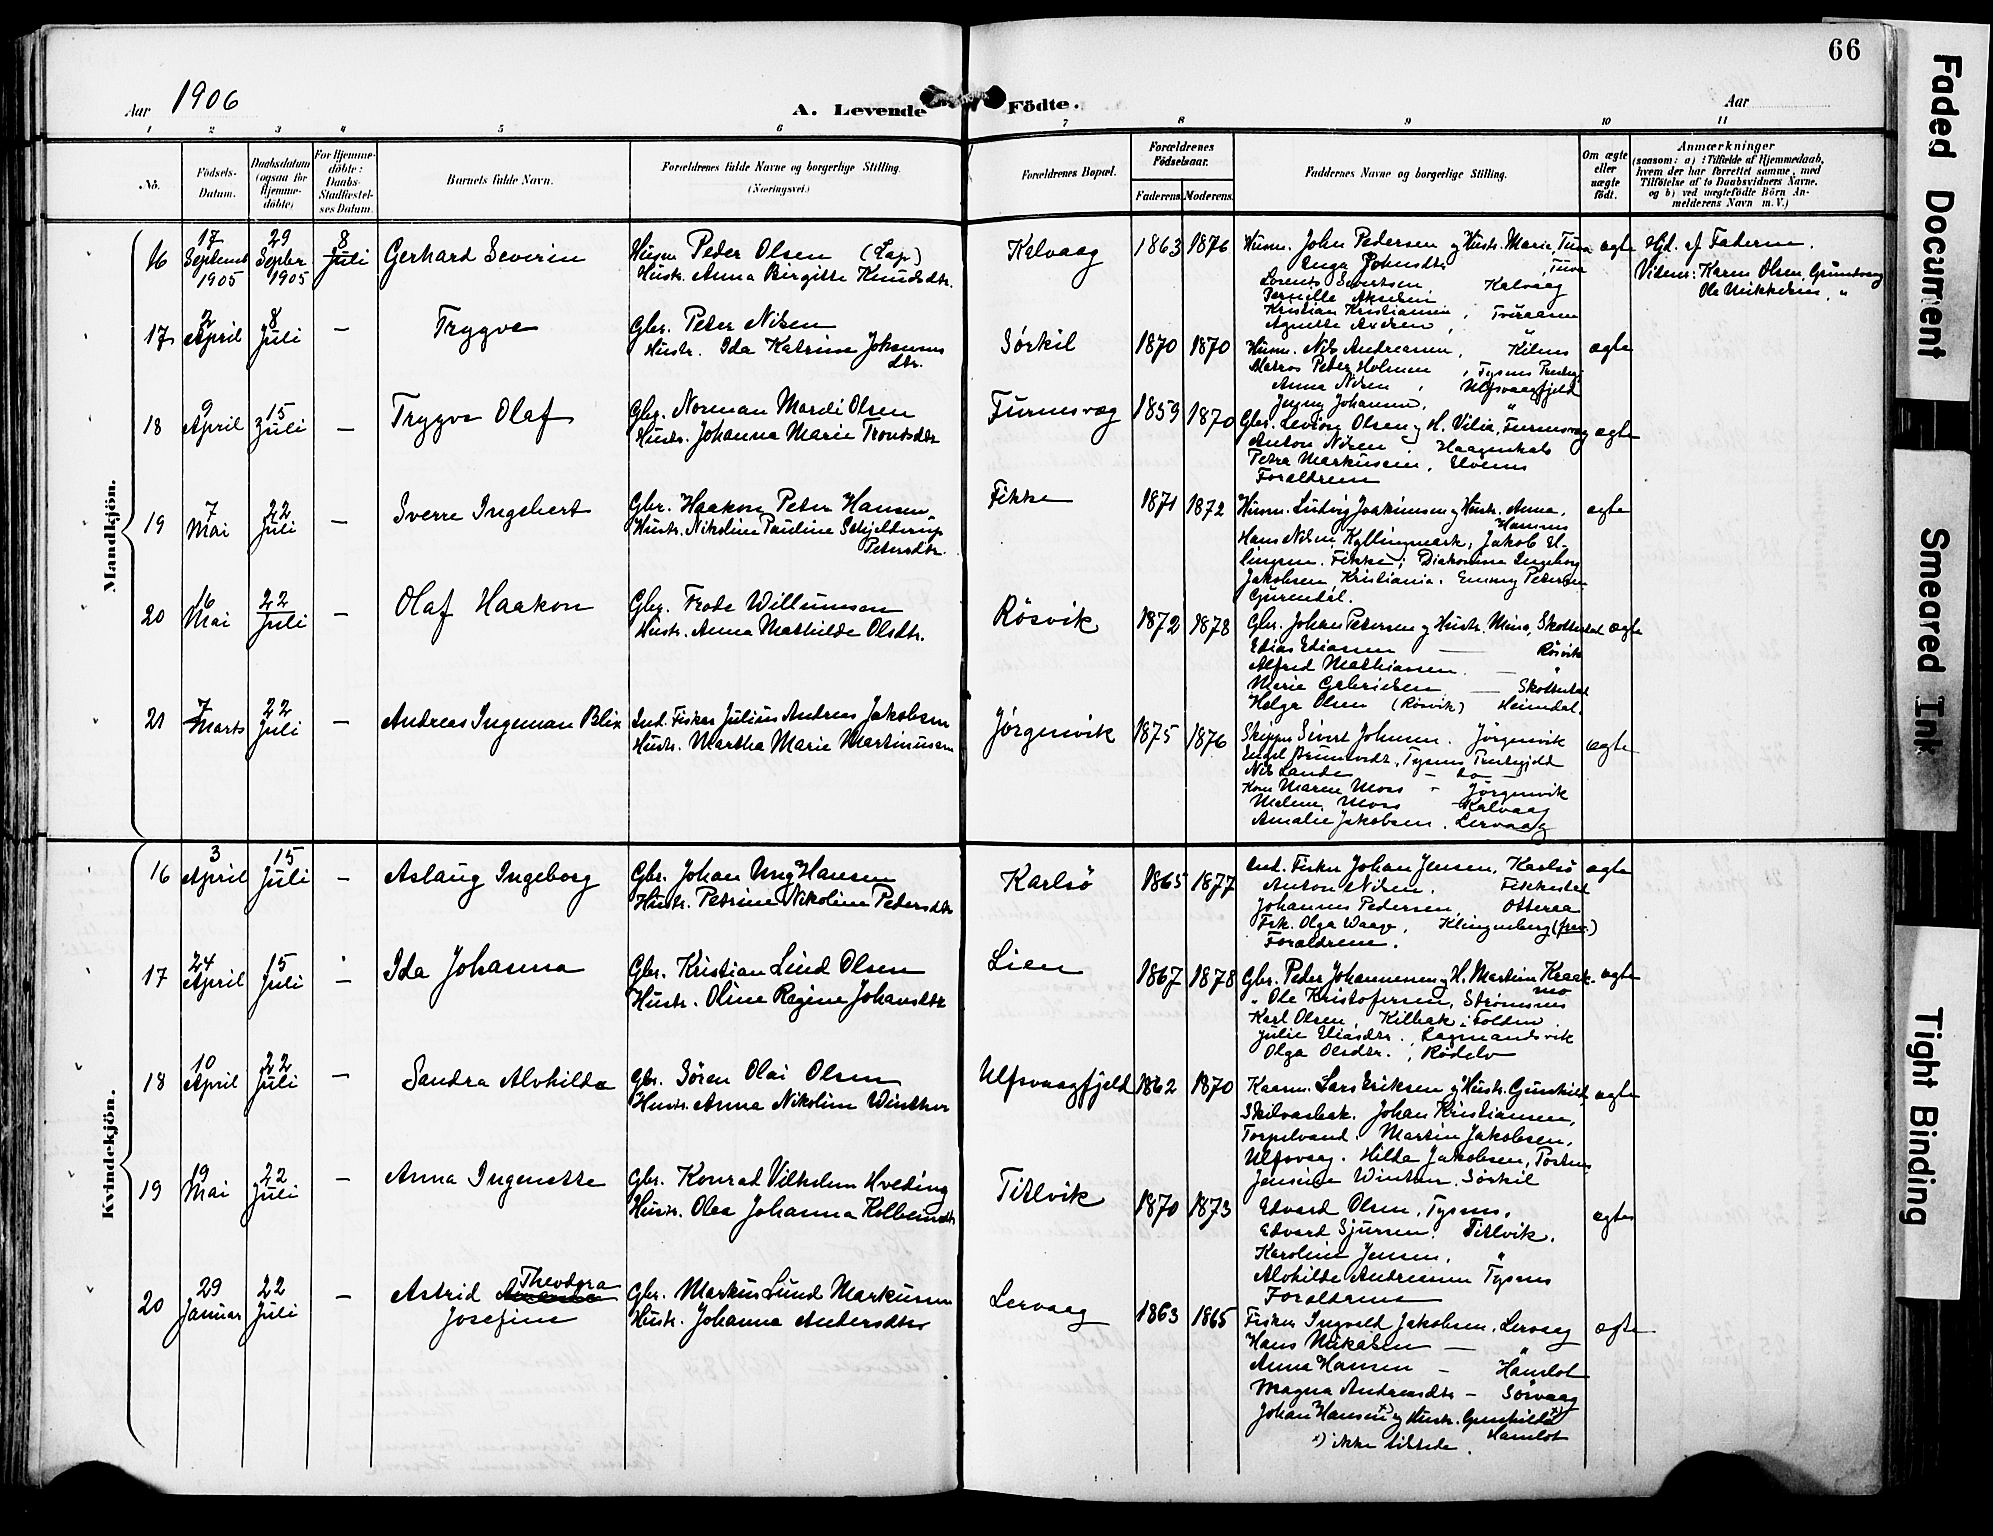 66
Aar 1906
A. Levende Födte.
Aar
1 2 3 4 5 6 7 8 9 10 11
No.
Födsels-
Datum.
Daabsdatum
(ogsaa for
Hjemme-
döbte)
For Hjemme-
döbte:
Daabs-
Stadfæstel-
ses Datum.
Barnets fulde Navn.
Forældrenes fulde Navne og borgerlige Stilling.
(Næringsvei.)
Forældrenes Bopæl.
Forældrenes
Födselsaar.
Faderens Moderens
Faddernes Navne og borgerlige Stilling.
Om ægte
eller
uægte
födt.
Anmærkninger
(saasom: a) i Tilfælde af Hjemmedaab,
hvem der har forrettet samme, med
Tilföielse af to Daabsvidners Navne,
og b) ved uægtefödte Börn An-
melderens Navn m. V.)
Mandkjön.
16
17
Septembr
1905
29
Septbr
1905
8
Juli
Gerhard Severin
Husm. Peder Olsen (Lap)
Hustr. Anna Birgitte Knudsdtr.
Kalvaag
1863 1876
Husm. John Pedersen og Hustr. Marie, Tuva
Inga Johnsdtr. Tuva
Lorents Sivertsen, Kalvaag
Pernille Akselsen
Kristian Kristiansen, Tveraaen
Agnette
ægte
Hjd. af Faderen.
Vidner: Karen Olsen, Grundvaag
Ole Mikkelsen, "
17
2
April
8
Juli
—
Trygve
Gbr. Peter Nilsen
Hustr. Ida Katrine Johannes
dtr.
Sørkil
1870 1870
Husm. Nils Andreassen, Kilnes
Matros Peter Holmen, Tysnes
Anna Nilsen, Ulfsvaagfjeld
Jenny Johansen, "
ægte
18
9
April
15
Juli
—
Trygve Olaf
Gbr. Norman Mardi Olsen
Hustr. Johanna Marie Trondsdtr
Furnesvæg
1859 1870
Gbr. Levion Olsen og H. Vilia, Furnesvæg
Anton Nilsen, Haagenhals
Petra Markussen, Elvenes
Forældrene
ægte
19
7
Mai
22
Juli
—
Sverre Ingebert
Gbr. Haakon Peter Hansen
Hustr. Nikoline Pauline Schjelderup
Petersdtr.
Fikke
1871 1872
Husm. Ludvig Joakimsen og Hustr. Anna,
Hamnes
Hans Nilsen, Kyllingmark, Jakob El-
lingsen, Fikke; Diakonisse Ingeborg
Jakobsen Kristiania. Emmy Petersen
ægte
20
16
Mai
22
Juli
—
Olaf Haakon
Gbr. Frode Willumsen
Hustr. Anna Mathilde Olsdtr.
Røsvik
1872 1878
Gbr. Johan Petersen og Hustr. Mina, Skottestad
Edias Ediassen — Røsvik
Alfred Mathiassen — "
Marie Gabrielsen — Skottestad
Helga Olsen (Røsvik) Heimdal.
ægte
21
7
Marts
22
Juli
—
Andreas Ingeman Blix
Ind. Fisker Julius Andreas Jakobsen
Hustr. Martha Marie Martinussen
Jørgensvik
1875 1876
Skipper Sivert Johnsen, Jörgensvik
Engel Bruntvedt, Tysnes
Nils Lande — do —
Kone Maren Moss - Jörgensvik
Malene Moss - Kalvaag
Amalie Jakobsen, Lervaag
ægte
Kvindekjön.
16
3
April
15
Juli
—
Aslaug Ingeborg
Gbr. Johan Ung Hansen
Hustr. Petrine Nikoline Pedersdtr
Karlsö
1865 1877
Ind. Fisker Johan Jensen, Karlsö
Anton Nilsen, Fikkestad
Johannes Pedersen, Otteraa
Frk. Olga Waage, Klingenberg (frav.)
Forældrene.
ægte
17
24
April
15
Juli
—
Ida Johanna
Gbr. Kristian Lund Olsen
Hustr. Oline Regine Johansdtr
Lien
1867 1878
Gbr. Peder Johannesen og H. Martine Kraak-
mo
" Ole Kristofersen, Strømsnes
Karl Olsen, Kilbak i Folden
Julie Eliasdtr., Lagmandsvik
Olga Olsdtr., Rødelv
ægte
18
10
April
22
Juli
—
Sandra Alvhilda
Gbr. Sören Olai Olsen
Hustr. Anna Nikoline Winther
Ulfsvaagfjeld
1862 1870
Kaarm. Lars Eriksen og Hustr. Gunhild,
Skilvasbak. Johan Kristiansen,
Torpelvand. Martin Jakobsen,
Ulfsvaag. Hilda Jakobsen,
Jensine Winther, Sørkil
ægte
19
19
Mai
22
Juli
—
Anna Ingenette
Gbr. Konrad Vilhelm Hveding
Hustr. Olea Johanna Kolbensdtr
Titlvik
1870 1873
Edvard Olsen, Tysnes,
Edvard Sjursen, Titlvik,
Karoline Jensen, "
Alvhilde Andreassen Tysnes
Forældrene
ægte
20
29
Januar
22
Juli
—
Astrid Theodora
Josefine
Gbr. Markus Lund Markussen
Hustr. Johanna Andersdtr
Lervaag
1863 1865
Fisker Ingvald Jakobsen, Lervaag
Hans Mikalsen — "
Anna Hansen — Hamlot
Magna Andreasdtr — Sörvaag
Johan Hansen x) og Hustr. Gunhilda x)
Hamlot
x) ikke tilstede.
ægte
Faded Document
Smeared Ink
Tight Binding